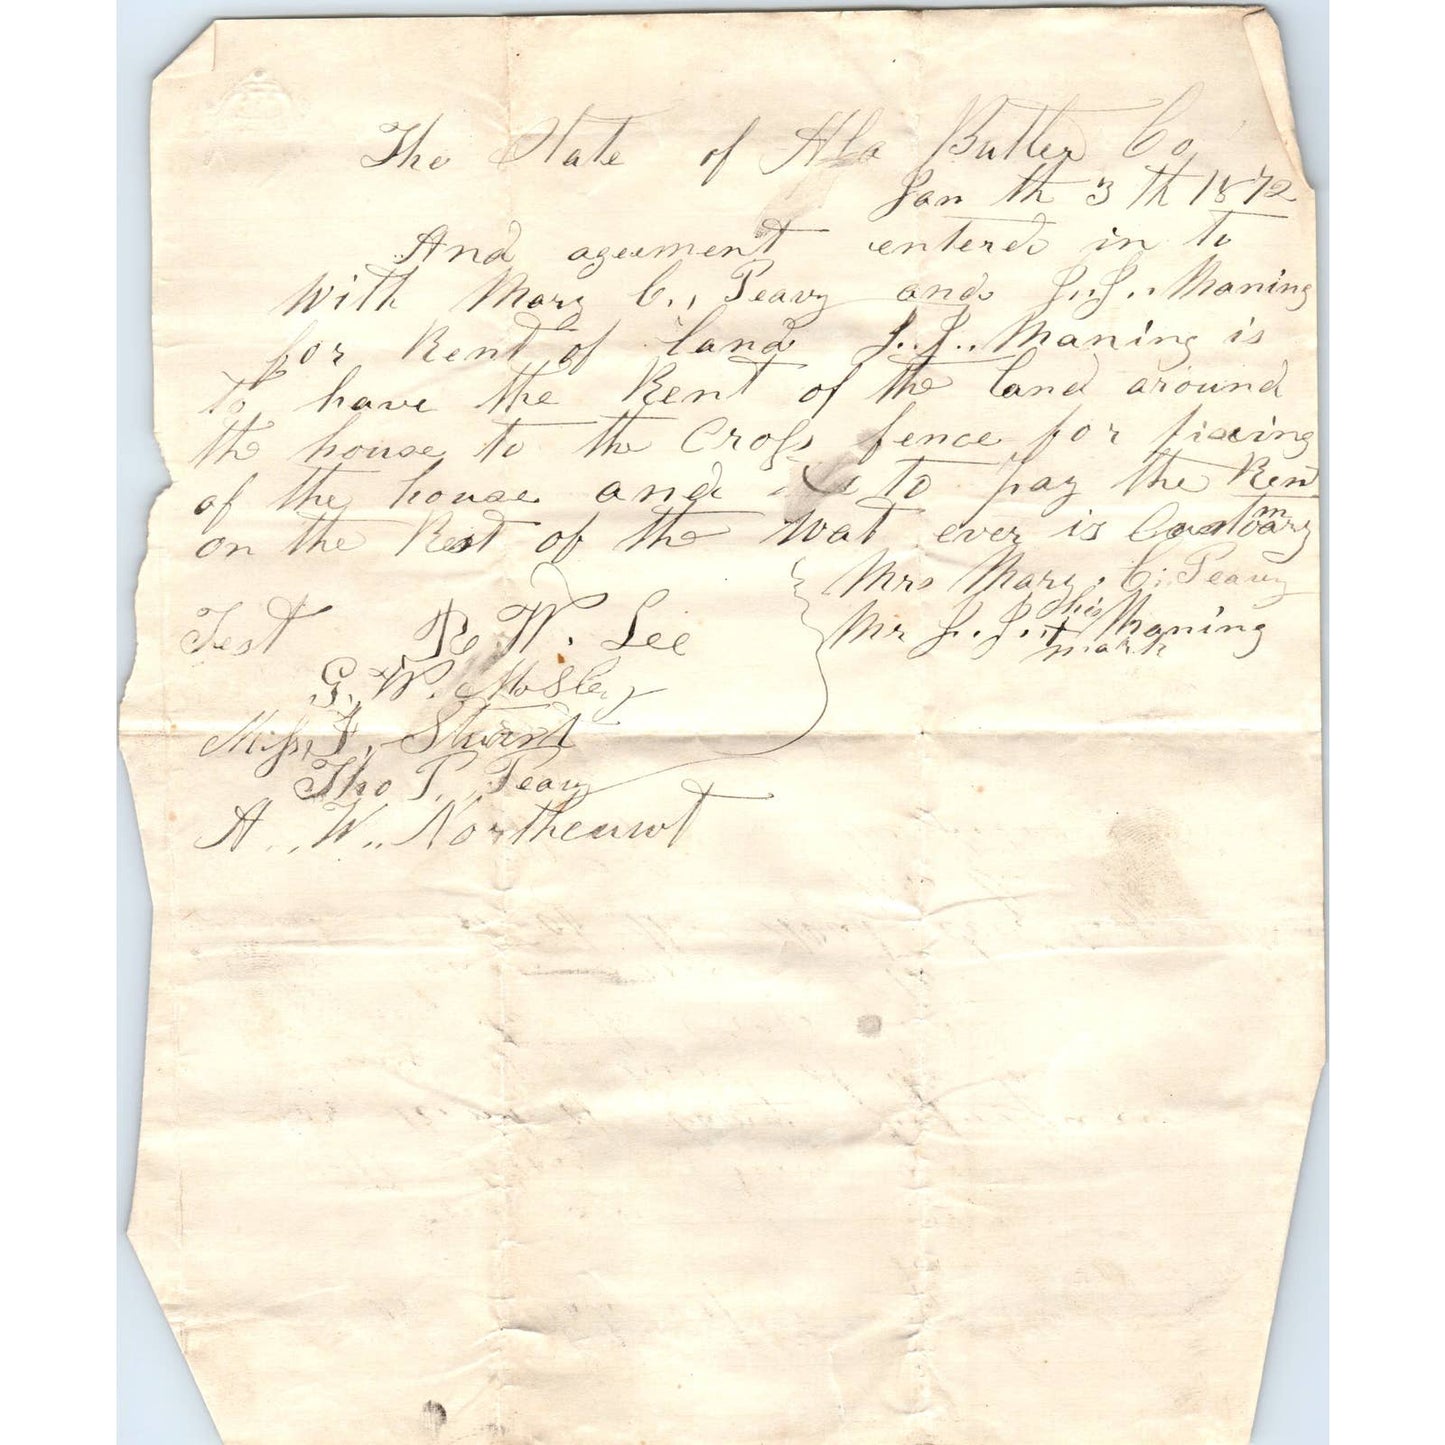 The State of Ala Butler Co
Jan th 3 th 1872
And ageement entered in to
with Mary C., Peavy and J. J., Maning
for Rent of land J. J., Maning is
to have the Rent of the land around
the house to the Cross fence for fixing
of the house and is to pay the Rent
on the Rest of the wat ever is Customary
Mrs Mary C. Peavy
Mr J. J. his x mark Maning
Test R W. Lee
G. W. Mosley
Miss, F, Stuart
Tho P. Peavy
A.. W..